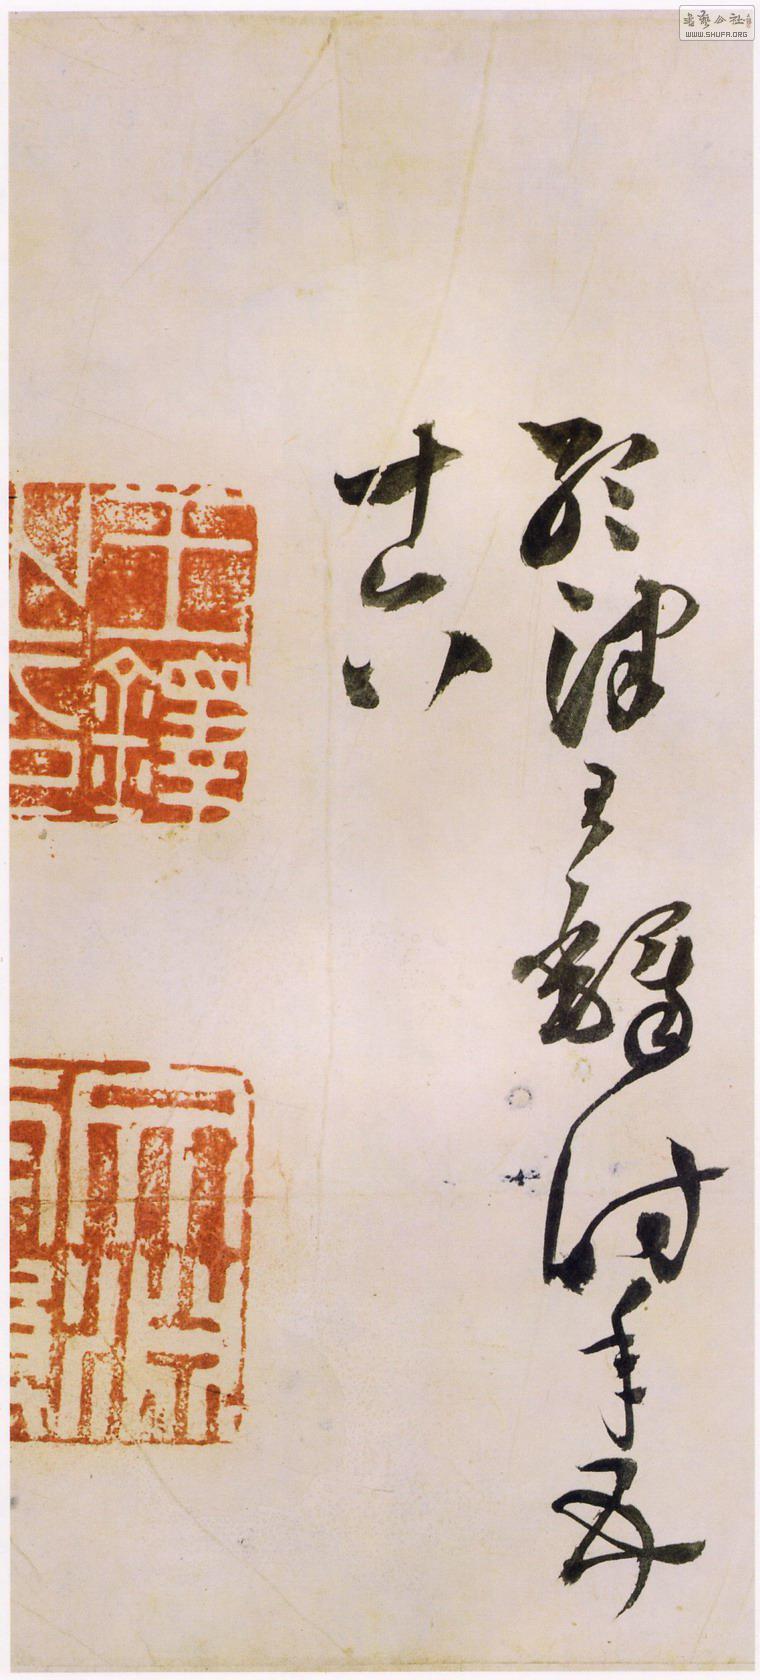 書藝公社
WWW.SHUFA.ORG
津王鐸時年五
十六
王鐸